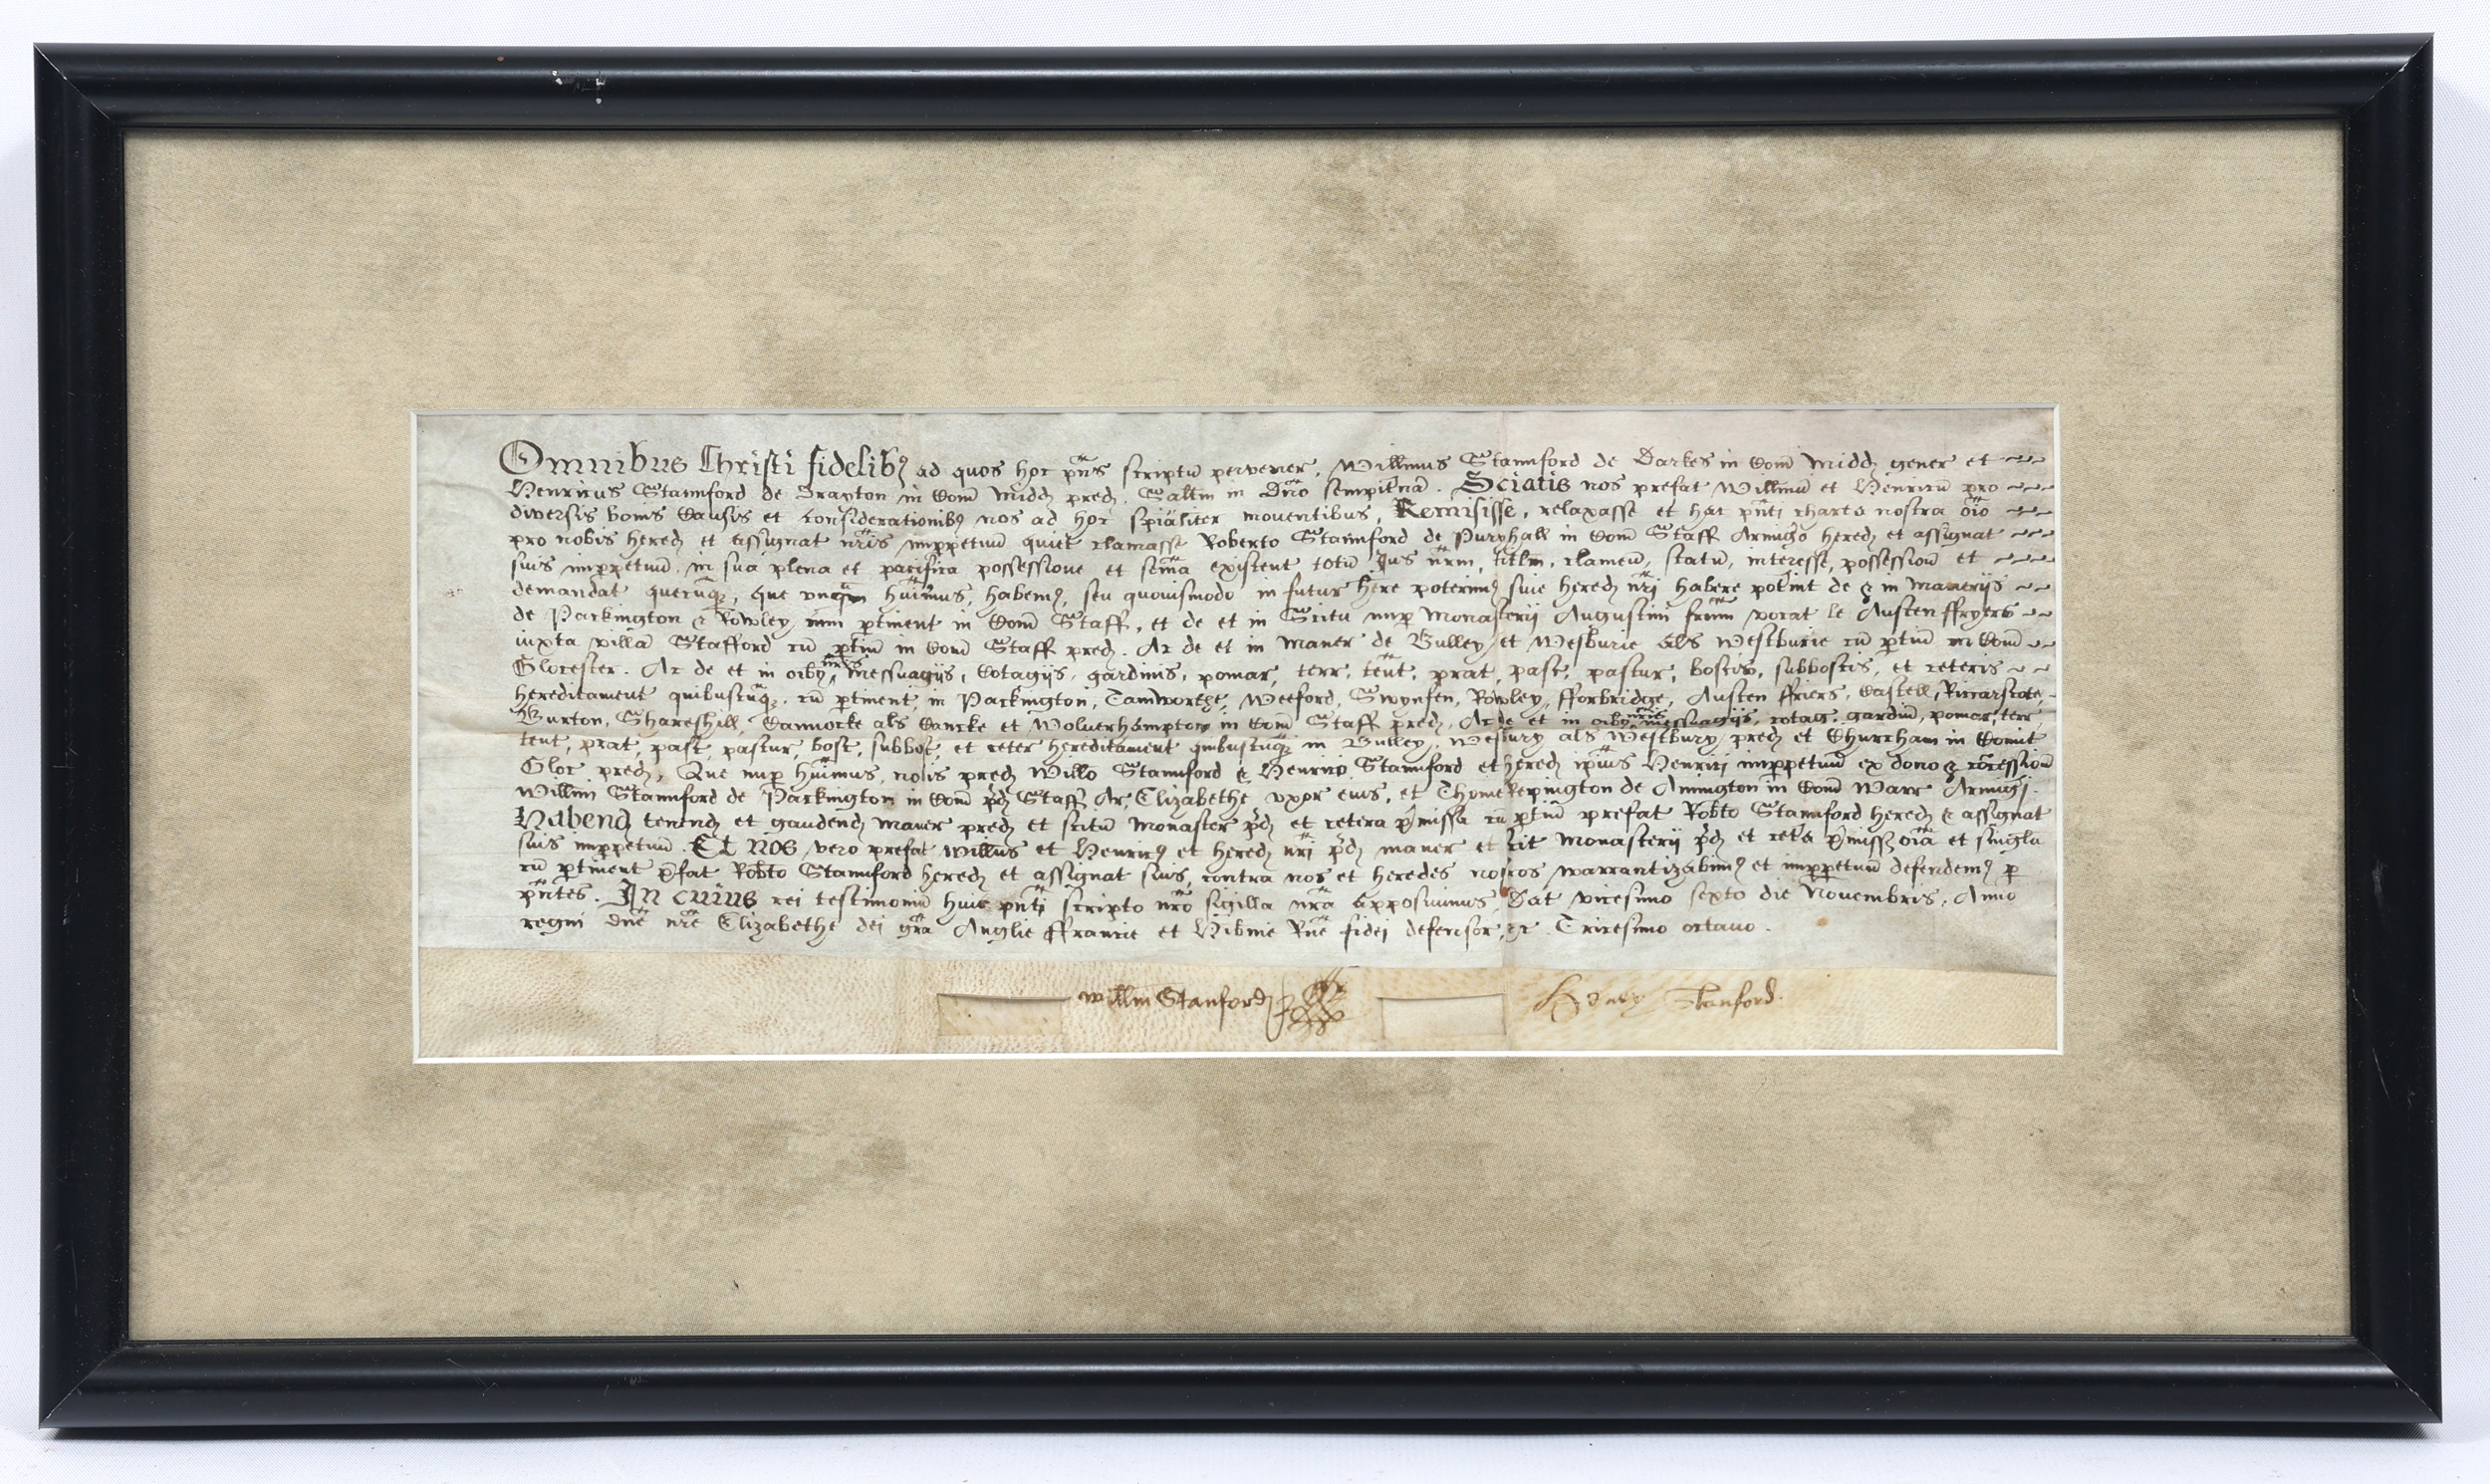 Omnibus Christi fidelibȝ ad quos hoc pn̄s scriptū pervener, Willmus Stamford de Darkes in Com̄ Midd gener et
Henricus Stamford de Drayton in Com̄ Midd pred. Saltm in Dn̄o sempitnā. Sciatis nos prefat Willmū et Henricū pro
diversis bonis Causis et considerationibȝ nos ad hoc sp̄ialiter moventibus, Remisisse, relaxasse et hac pn̄ti charta nostra oīo
pro nobis hered et Assignat nr̄is imppetuū quiet clamasse Roberto Stamford de Puryhall in Com̄ Staff Armigo hered et assignat
suis imppetuū in sua plena et pacifica possessione et seina existent totū Jus nr̄m, titlm, clameū, statū, interesse, possessionū et
demandat quecūqȝ, que vnqm huimus, habemȝ, seu quovismodo in futur here poterimȝ sive hered nr̄i habere potint de & in Manerijs
de Packington & Rowley cum ptinent in Com̄ Staff, et de et in Scitu nup Monasterij Augustini frūm vocat le Austen ffryers
iuxta villā Stafford cū ptiū in Com̄ Staff pred. Ac de et in Maner de Bulley et Wesburie als Westburie cū ptiū in Com̄
Glocester. Ac de et in oibȝ nr̄is Messuagijs, Cotagijs, gardinis, pomar, terr, tent, prat, pasc, pastur, boscis, subboscis, et ceteris
hereditament quibuscūqȝ, cū ptinent, in Packington, Tamworthe, Weeford, Swynfen, Rowley, fforbridge, Austen ffriers, Castell, Riccarscote,
Burton, Shareshill, Cannocke als Cancke et Wolverhampton in Com̄ Staff pred, Ac de et in oibȝ nr̄is messuagijs, cotag, gardiū, pomar, terr
tent, prat, past, pastur, bosc, subbosc, et ceter hereditament quibuscūqȝ in Bulley, Wesbury als Westbury pred et Churcham in Comit
Gloc pred, Que nup huimus, nobis pred Willo Stamford & Henrico Stamford et hered ip̄ius Henrici imppetuū ex dono & cōcessionē
Willmi Stamford de Packington in Com̄ pd Staff Ar, Elizabethe vxor eius, et Thome Repington de Amington in Com̄ Warr Armigi.
Habend tenend et gaudend Maner pred et scitū Monaster pd et cetera pmissa cū ptiū prefat Robto Stamford hered & assignat
suis imppetuū. Et nos vero prefat Willus et Henricȝ et hered nr̄i pd maner et scit Monasterij pd et ceta pmiss oīa et singla
cū ptinent pfat Robto Stamford hered et assignat suis, contra nos et heredes nostros warrantizabimȝ et imppetuū defendemȝ p
pn̄tes. In cuius rei testimoniū huic pn̄ti scripto nr̄o sigilla nr̄a Apposuimus Dat vicesimo sexto die Novembris, Anno
regni dn̄e nr̄e Elizabethe dei gr̄a Anglie ffrancie et Hibnie Rn̄e fidei defensor, &c Tricesimo octavo.
Willm Stanford
Henry Stanford.